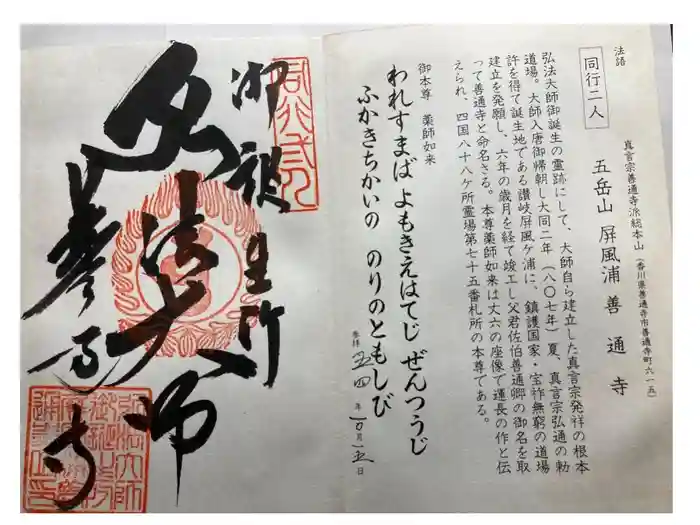 法語
同行二人
真言宗善通寺派総本山(香川県善通寺市善通寺町六一五)
五岳山 屏風浦 善通寺
弘法大師御誕生の霊跡にして、大師自ら建立した真言宗発祥の根本
道場。大師入唐御帰朝し大同二年(八〇七年)夏、真言宗弘通の勅
許を得て誕生地である讃岐屏風ケ浦に、鎮護国家・宝祚無窮の道場
建立を発願し、六年の歳月を経て竣工し父君佐伯善通卿の御名を取
って善通寺と命名さる。本尊薬師如来は大六の座像で運長の作と伝
えられ、四国八十八ケ所霊場第七十五番札所の本尊である。
御本尊 薬師如来
われすまば よもきえはてじ ぜんつうじ
ふかきちかいの のりのともしび
参拝 五四年10月五日
御誕生所
弘法大師
善通寺